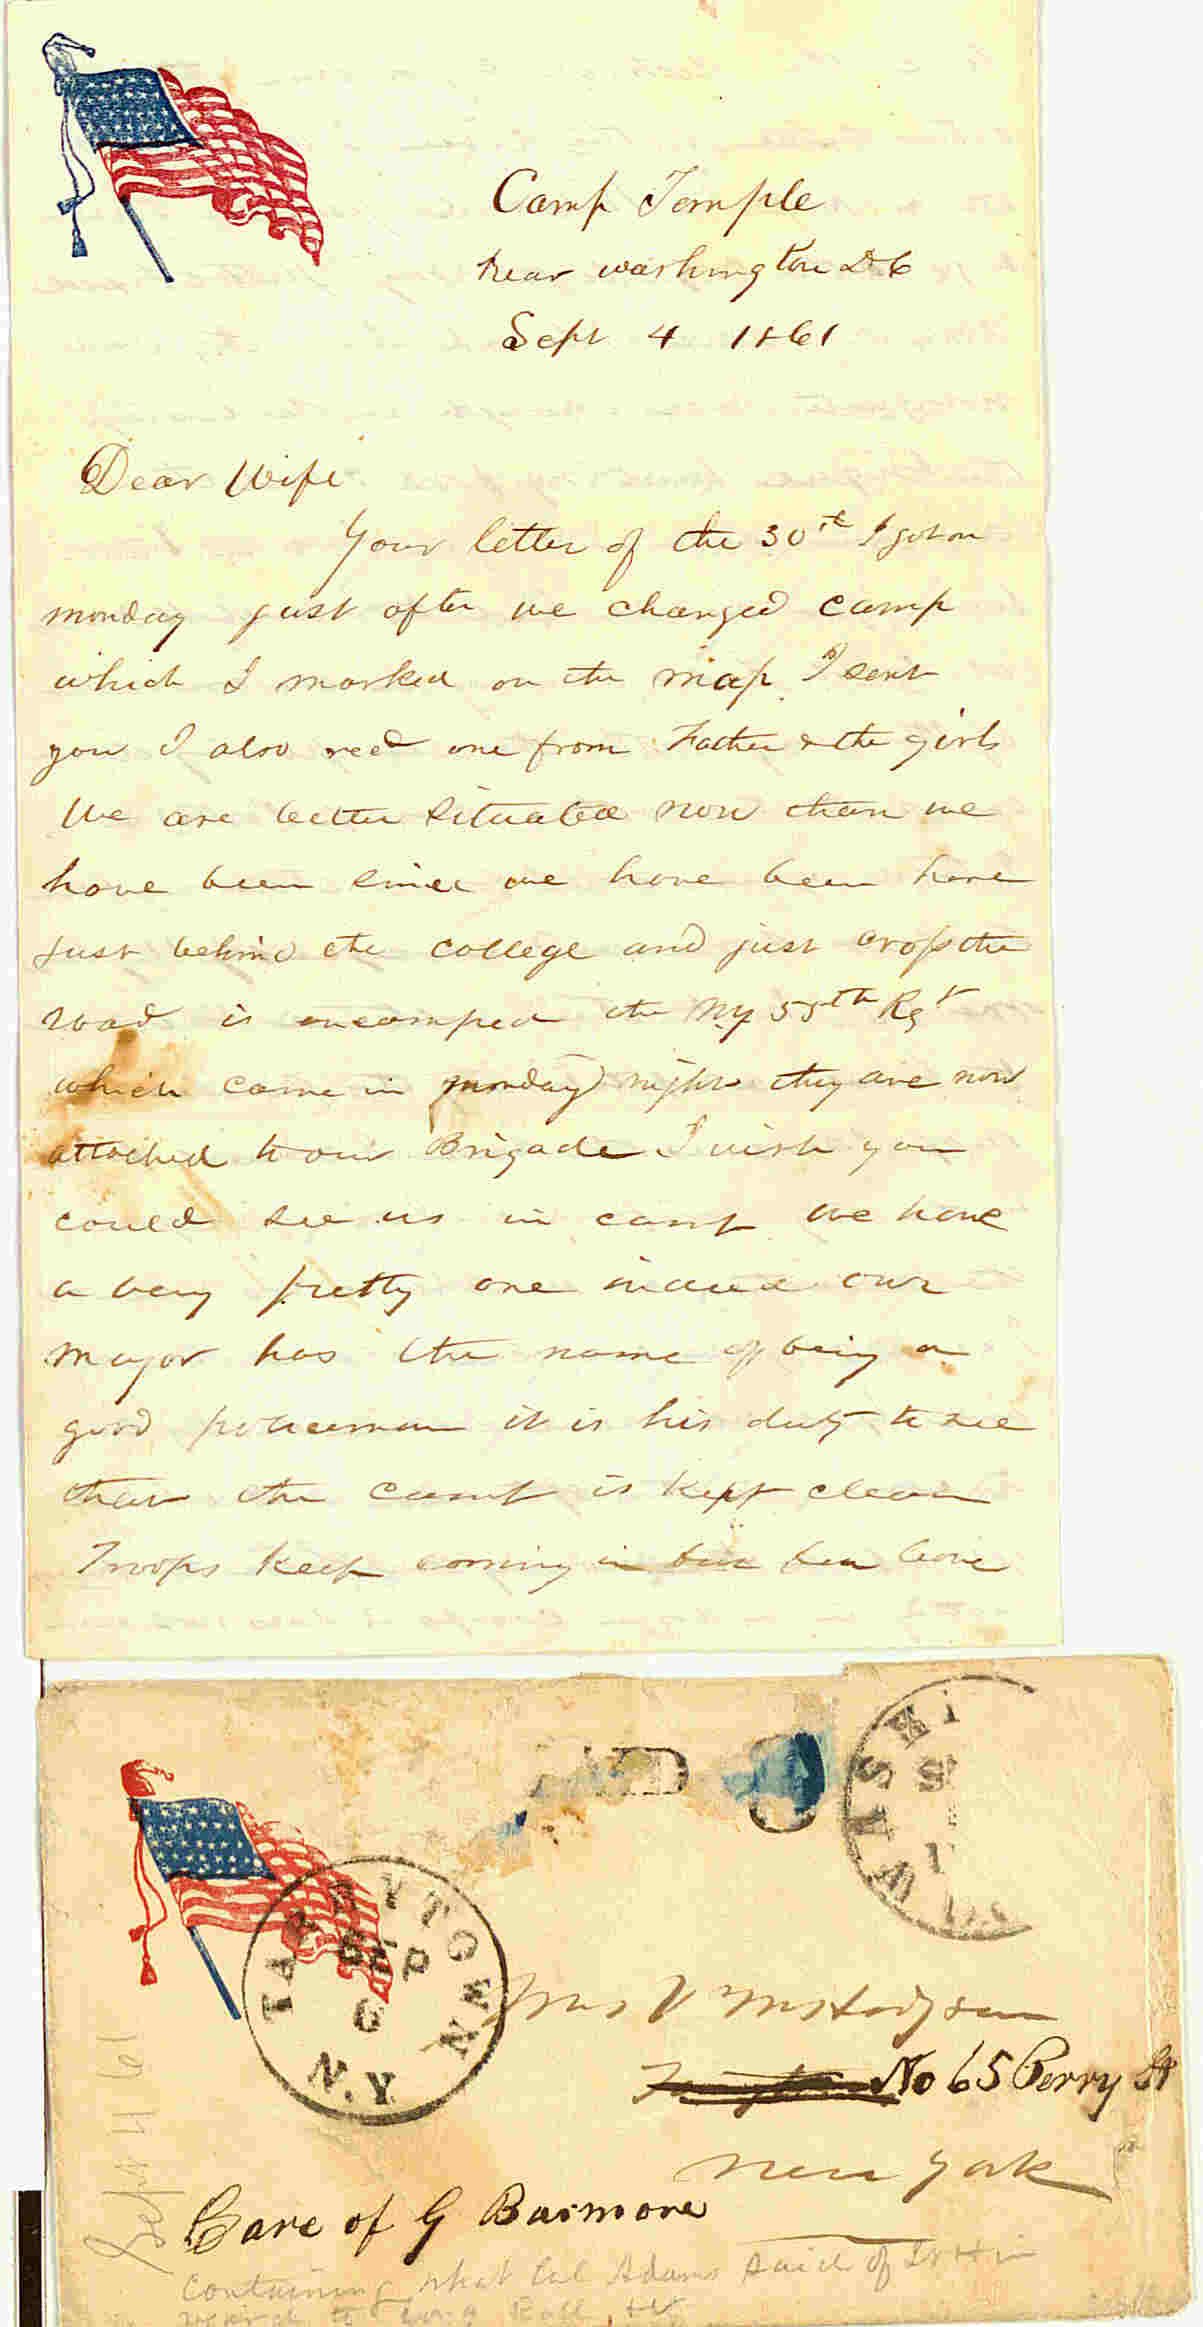 Camp Temple
near washington DC
Sept 4 1861
Dear Wife
Your letter of the 30th I got on
monday just after we changed camp
which I marked on the map I sent
you I also recd one from Father & the girls
We are better situated now than we
have been since we have been here
just behind the college and just cross the
road is encamped the Ny 55th Rgt
which came in monday night they are now
attached to our Brigade I wish you
could see us in camp we have
a very pretty one indeed our
major has the name of being a
good policeman it is his duty to see
that the camp is kept clean
Troops keep coming in but few leave
WASHI
TARRYTOWN
SEP
6
N.Y
Mrs V
No 65 Perry St
New York
Care of G Barmore
Sept 4 61
Containing what Col Adams said of
Roll